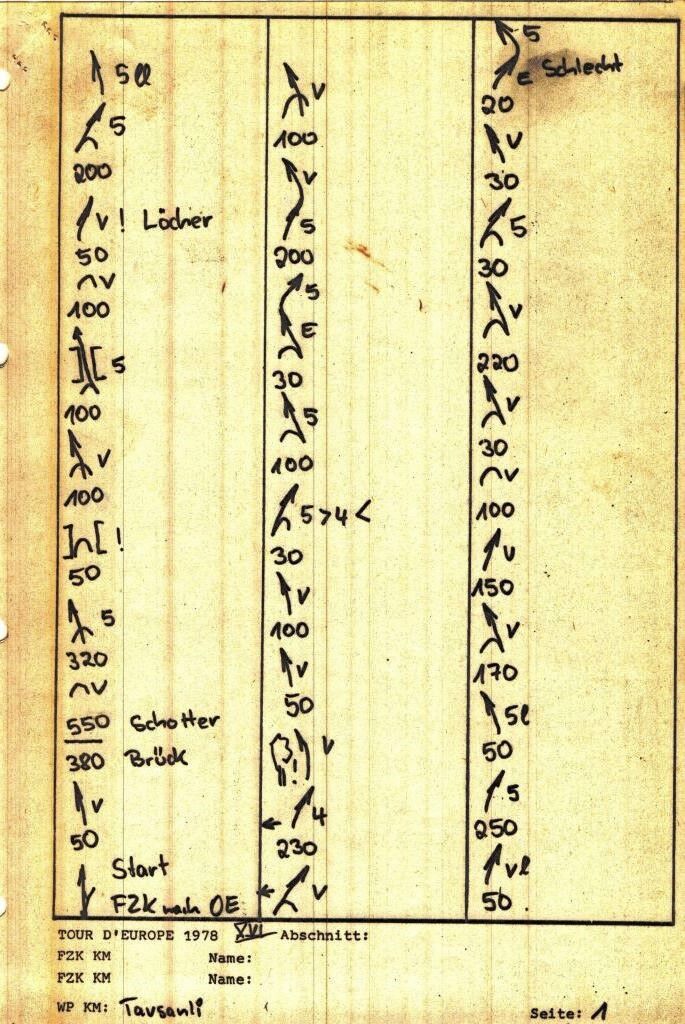 5ll
5
200
V! Löcher
50
V
100
5
100
V
100
!
50
5
320
V
550 Schotter
380 Brück
V
50
Start
FZK nach OE
V
100
V
5
200
5
E
30
5
100
5>4<
30
V
100
V
50
V
!!
4
230
V
5
E Schlecht
20
V
30
5
30
V
220
V
30
V
100
V
150
V
170
5l
50
5
250
Vl
50
TOUR D'EUROPE 1978 XVI Abschnitt:
FZK KM Name:
FZK KM Name:
WP KM: Tavsanli
Seite: 1